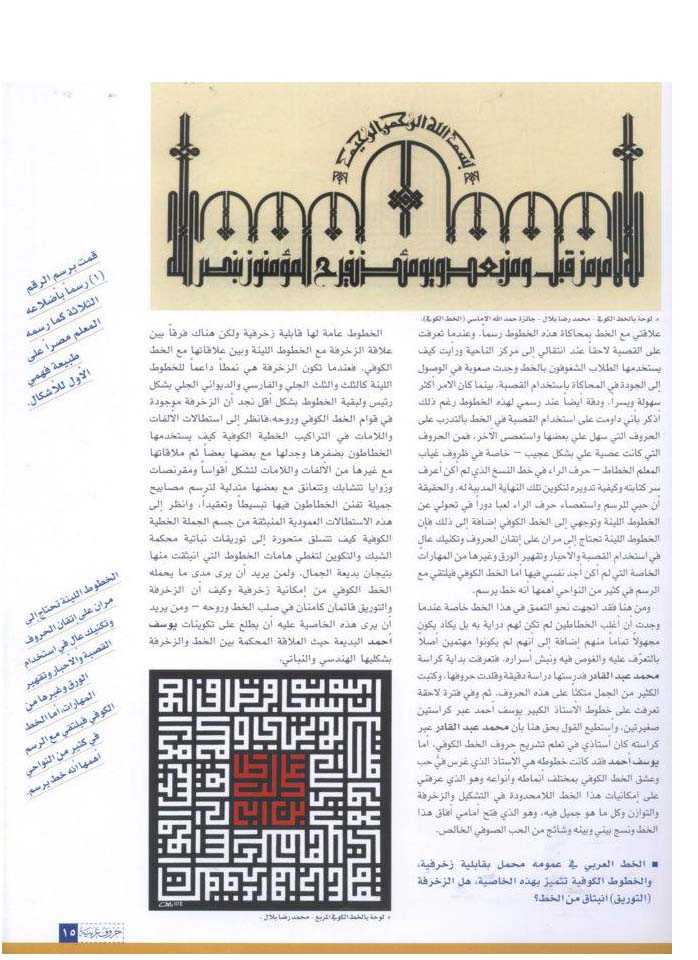 بسم الله الرحمن الرحيم
لله الأمر من قبل ومن بعد ويومئذ يفرح المؤمنون بنصر الله
* لوحة بالخط الكوفي - محمد رضا بلال - جائزة حمد الله الأماسي (الخط الكوفي).
علاقتي مع الخط بمحاكاة هذه الخطوط رسماً. وعندما تعرفت
على القصبة لاحقاً عند انتقالي إلى مركز الناحية ورأيت كيف
يستخدمها الطلاب الشغوفون بالخط وجدت صعوبة في الوصول
إلى الجودة في المحاكاة باستخدام القصبة. بينما كان الأمر أكثر
سهولة ويسراً، ودقة أيضاً عند رسمي لهذه الخطوط رغم ذلك
أذكر بأني داومت على استخدام القصبة في الخط بالتدرب على
الحروف التي سهل علي بعضها واستعصى الآخر، فمن الحروف
التي كانت عصية علي بشكل عجيب - خاصة في ظروف غياب
المعلم الخطاط - حرف الراء في خط النسخ الذي لم أكن أعرف
سر كتابته وكيفية تدويره لتكوين تلك النهاية المدببة له. والحقيقة
أن حبي للرسم واستعصاء حرف الراء لعبا دوراً في تحولي عن
الخطوط اللينة وتوجهي إلى الخط الكوفي إضافة إلى ذلك فإن
الخطوط اللينة تحتاج إلى مران على إتقان الحروف وتكنيك عالٍ
في استخدام القصبة والأحبار وتقهير الورق وغيرها من المهارات
الخاصة التي لم أكن أجد نفسي فيها أما الخط الكوفي فيلتقي مع
الرسم في كثير من النواحي أهمها أنه خط يرسم.
ومن هنا فقد اتجهت نحو التعمق في هذا الخط خاصة عندما
وجدت أن أغلب الخطاطين لم تكن لهم دراية به بل يكاد يكون
مجهولاً تماماً منهم إضافة إلى أنهم لم يكونوا مهتمين أصلاً
بالتعرّف عليه والغوص فيه ونبش أسراره. فتعرفت بداية كراسة
محمد عبد القادر فدرستها دراسة دقيقة وقلدت حروفها، وكتبت
الكثير من الجمل متكئاً على هذه الحروف. ثم وفي فترة لاحقة
تعرفت على خطوط الأستاذ الكبير يوسف أحمد عبر كراستين
صغيرتين، وأستطيع القول بحق هنا بأن محمد عبد القادر عبر
كراسته كان أستاذي في تعلم تشريح حروف الخط الكوفي، أما
يوسف أحمد فقد كانت خطوطه هي الأستاذ الذي غرس فيَّ حب
وعشق الخط الكوفي بمختلف أنماطه وأنواعه وهو الذي عرفني
على إمكانيات هذا الخط اللامحدودة في التشكيل والزخرفة
والتوازن وكل ما هو جميل فيه، وهو الذي فتح أمامي آفاق هذا
الخط ونسج بيني وبينه وشائج من الحب الصوفي الخالص.
■ الخط العربي في عمومه محمل بقابلية زخرفية،
والخطوط الكوفية تتميز بهذه الخاصية، هل الزخرفة
(التوريق) انبثاق من الخط؟
الخطوط عامة لها قابلية زخرفية ولكن هناك فرقاً بين
علاقة الزخرفة مع الخطوط اللينة وبين علاقاتها مع الخط
الكوفي. فعندما تكون الزخرفة هي نمطاً داعماً للخطوط
اللينة كالثلث والثلث الجلي والفارسي والديواني الجلي بشكل
رئيس ولبقية الخطوط بشكل أقل نجد أن الزخرفة موجودة
في قوام الخط الكوفي وروحه. فانظر إلى استطالات الألفات
واللامات في التراكيب الخطية الكوفية كيف يستخدمها
الخطاطون بضفرها وجدلها مع بعضها بعضاً ثم ملاقاتها
مع غيرها من الألفات واللامات لتشكل أقواساً ومقرنصات
وزوايا تتشابك وتتعانق مع بعضها متدلية لترسم مصابيح
جميلة تفنن الخطاطون فيها تبسيطاً وتعقيداً، وانظر إلى
هذه الاستطالات العمودية المنبثقة من جسم الجملة الخطية
الكوفية كيف تتسلق متحورة إلى توريقات نباتية محكمة
الشبك والتكوين لتغطي هامات الخطوط التي انبثقت منها
بتيجان بديعة الجمال. ولمن يريد أن يرى مدى ما يحمله
الخط الكوفي من إمكانية زخرفية وكيف أن الزخرفة
والتوريق قائمان كامنان في صلب الخط وروحه - ومن يريد
أن يرى هذه الخاصية عليه أن يطلع على تكوينات يوسف
أحمد البديعة حيث العلاقة المحكمة بين الخط والزخرفة
بشكليها الهندسي والنباتي.
* لوحة بالخط الكوفي المربع - محمد رضا بلال -.
قمت برسم الرقم
(١) رسماً بأضلاعه
الثلاثة كما رسمه
المعلم مصراً على
طبيعة فهمي
الأول للأشكال.
الخطوط اللينة تحتاج إلى
مران على إتقان الحروف
وتكنيك عالٍ في استخدام
القصبة والأحبار وتقهير
الورق وغيرها من
المهارات، أما الخط
الكوفي فيلتقي مع الرسم
في كثير من النواحي
أهمها أنه خط يرسم.
حروف عربية
١٥